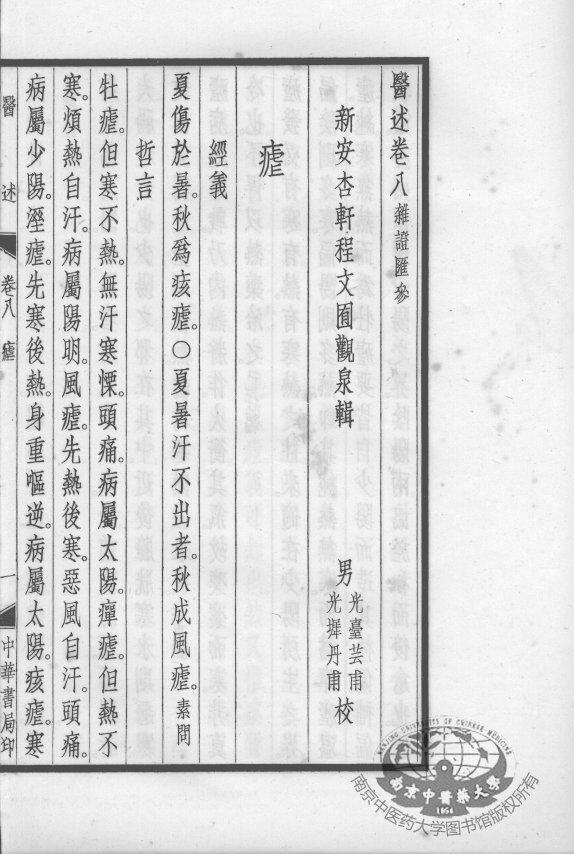 醫述卷八雜證匯參
新安杏軒程文囿觀泉輯 男光臺芸甫光墀丹甫校
瘧
經義
夏傷於暑。秋爲痎瘧。〇夏暑汗不出者。秋成風瘧。素問
哲言
牡瘧。但寒不熱。無汗寒慄。頭痛。病屬太陽。癉瘧。但熱不
寒。煩熱自汗。病屬陽明。風瘧。先熱後寒。惡風自汗。頭痛。
病屬少陽。溼瘧。先寒後熱。身重嘔逆。病屬太陽。痎瘧。寒
醫述 卷八 瘧 一 中華書局印
NANJING UNIVERSITY OF CHINESE MEDICINE
南京中醫藥大學
1954
南京中医药大学图书馆版权所有